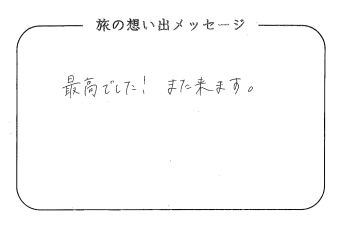 旅の想い出メッセージ
最高でした! また来ます。